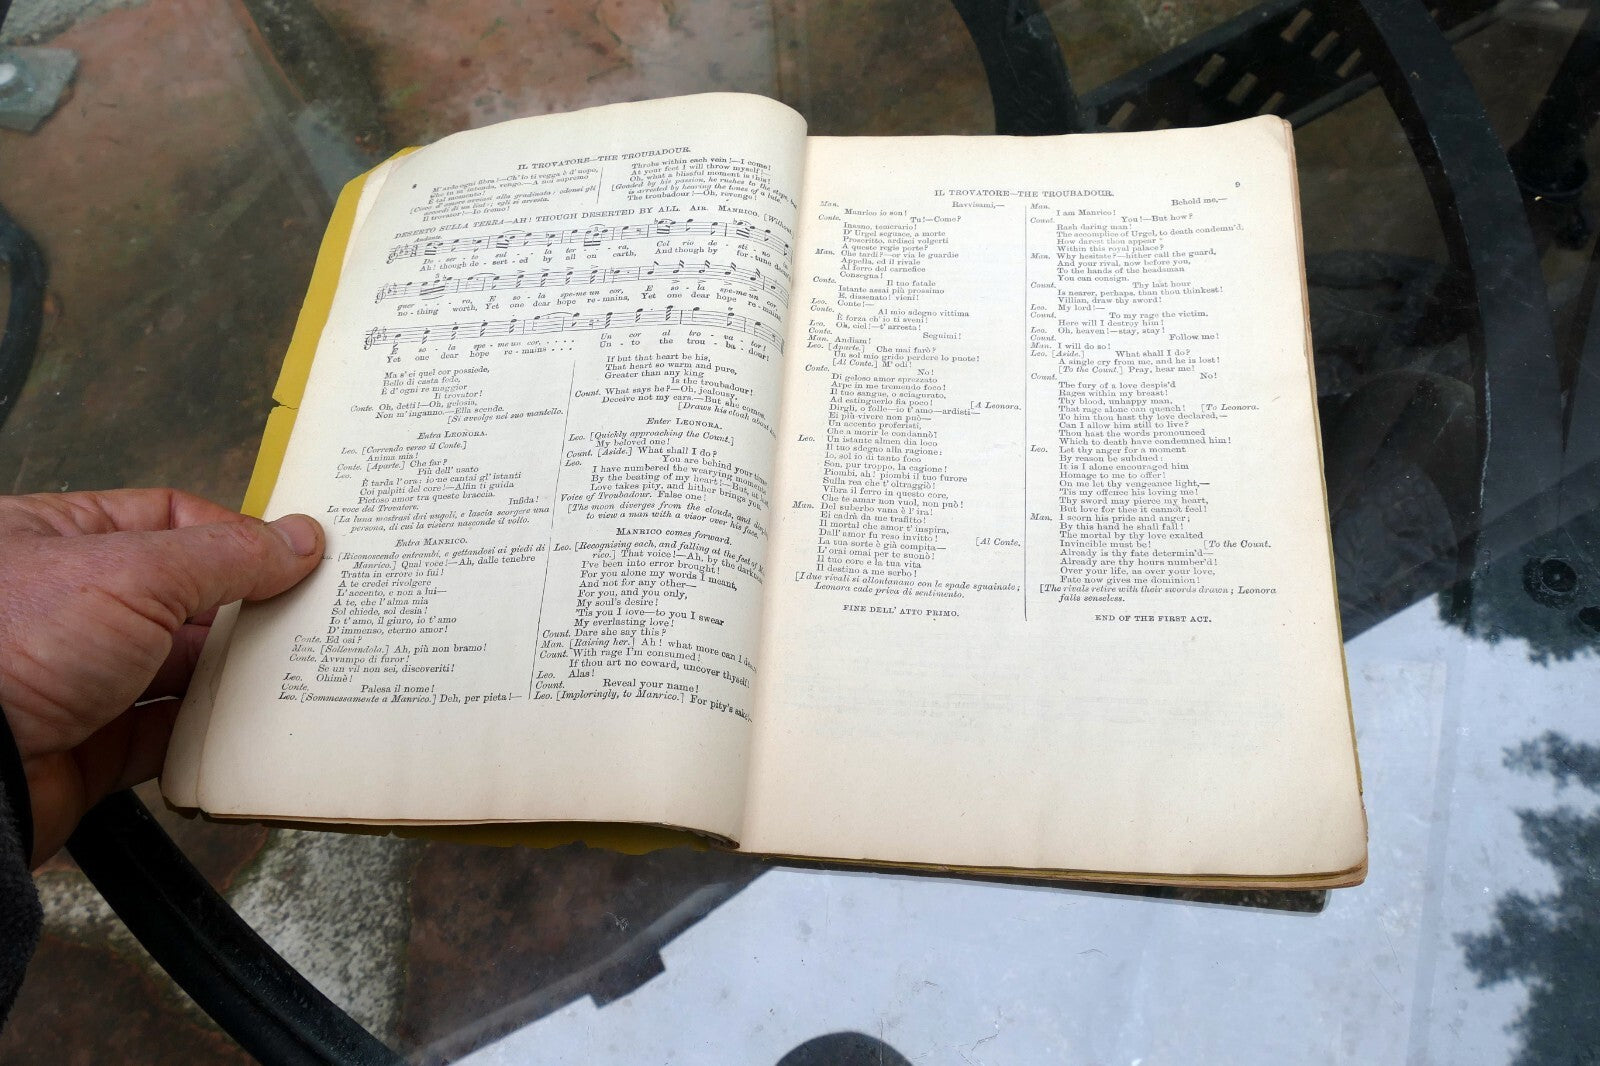 IL TROVATORE—THE TROUBADOUR.
8
M'ardo ogni fibra!—Ch'io ti vegga è d'uopo,
Che tu m'intenda, vengo.—A noi supremo
È tal momento!
Il trovator!—Io fremo!
Throbs within each vein!—I come!
At your feet I will throw myself!—
Oh, what a blissful moment is this!
[Goaded by his passion, he rushes to the steps, but
is arrested by hearing the tones of a lute.
The troubadour!—Oh, revenge!
DESERTO SULLA TERRA—AH! THOUGH DESERTED BY ALL. AIR. MANRICO. [Without.]
Andante.
De - ser - to sul - la ter - ra, Col rio de - sti - no in
Ah! though de - sert - ed by all on earth, And though by for - tune
guer - ra, È so - la spe-me un cor, È so - la spe-me un cor
no - thing worth, Yet one dear hope re - mains, Yet one dear hope re - mains
È so - la spe - me un cor, . . . . . Un cor al tro - va - tor!
Yet one dear hope re - mains . . . . Un - to the trou - ba - dour!
Ma s'ei quel cor possiede,
Bello di casta fede,
È d'ogni re maggior
Il trovator!
Conte. Oh, detti!—Oh, gelosia,
Non m'inganno.—Ella scende.
[Si avvolge nel suo mantello.
Entra LEONORA.
Leo. [Correndo verso il Conte.]
Anima mia!
Conte. [Aparte.] Che far?
Leo. Più dell' usato
È tarda l'ora: io ne cantai gl' istanti
Coi palpiti del core!—Alfin ti guida
Pietoso amor tra queste braccia.
La voce del Trovatore. Infida!
[La luna mostrasi dai nugoli, e lascia scorgere una
persona, di cui la visiera nasconde il volto.
Entra MANRICO.
[Riconoscendo entrambi, e gettandosi ai piedi di
Manrico.] Qual voce!—Ah, dalle tenebre
Tratta in errore io fui!
A te credei rivolgere
L'accento, e non a lui—
A te, che l'alma mia
Sol chiede, sol desia!
Io t'amo, il giuro, io t'amo
D'immenso, eterno amor!
Conte. Ed osi?
Man. [Sollevandola.] Ah, più non bramo!
Conte. Avvampo di furor!
Se un vil non sei, discoveriti!
Leo. Ohimè!
Conte. Palesa il nome!
Leo. [Sommessamente a Manrico.] Deh, per pieta!—
If but that heart be his,
That heart so warm and pure,
Greater than any king
Is the troubadour!
Count. What says he?—Oh, jealousy,
Deceive not my ears.—But she comes.
[Draws his cloak about him.
Enter LEONORA.
Leo. [Quickly approaching the Count.]
My beloved one!
Count. [Aside.] What shall I do?
Leo. You are behind your time
I have numbered the wearying moments
By the beating of my heart!—But, at
Love takes pity, and hither brings you
Voice of Troubadour. False one!
[The moon diverges from the clouds, and
to view a man with a visor over his face.
MANRICO comes forward.
Leo. [Recognising each, and falling at the feet of
rico.] That voice!—Ah, by the darkness
I've been into error brought!
For you alone my words I meant,
And not for any other—
For you, and you only,
My soul's desire!
'Tis you I love—to you I swear
My everlasting love!
Count. Dare she say this?
Man. [Raising her.] Ah! what more can I
Count. With rage I'm consumed!
If thou art no coward, uncover thyself!
Leo. Alas!
Count. Reveal your name!
Leo. [Imploringly, to Manrico.] For pity's sake,—
IL TROVATORE—THE TROUBADOUR.
9
Man. Ravvisami,—
Manrico io son!
Conte. Tu!—Come?
Insano, temerario!
D'Urgel seguace, a morte
Proscritto, ardisci volgerti
A queste regie porte?
Man. Che tardi?—or via le guardie
Appella, ed il rivale
Al ferro del carnefice
Consegna!
Conte. Il tuo fatale
Istante assai più prossimo
È, dissenato! vieni!
Leo. Conte!—
Conte. Al mio sdegno vittima
È forza ch'io ti sveni!
Leo. Oh, ciel!—t'arresta!
Conte. Seguimi!
Man. Andiam!
Leo. [Aparte.] Che mai farò?
Un sol mio grido perdere lo puote!
[Al Conte.] M'odi!
Conte. No!
Di geloso amor sprezzato
Arpe in me tremendo foco!
Il tuo sangue, o sciagurato,
Ad estinguerlo fia poco! [A Leonora.
Dirgli, o folle—io t'amo—ardisti—
Ei più vivere non può—
Un accento proferisti,
Che a morir le condannò!
Leo. Un istante almen dia loco
Il tuo sdegno alla ragione:
Io, sol io di tanto foco
Son, pur troppo, la cagione!
Piombi, ah! piombi il tuo furore
Sulla rea che t'oltraggiò!
Vibra il ferro in questo core,
Che te amar non vuol, non può!
Man. Del suberbo vana è l'ira!
Ei cadrà da me trafitto!
Il mortal che amor t'inspira,
Dall' amor fu reso invitto! [Al Conte.
La tua sorte è già compita—
L'orai omai per te suonò!
Il tuo core e la tua vita
Il destino a me serbo!
[I due rivali si allontanano con le spade sguainate;
Leonora cade priva di sentimento.
FINE DELL' ATTO PRIMO.
Man. Behold me,—
I am Manrico!
Count. You!—But how?
Rash daring man!
The accomplice of Urgel, to death condemn'd,
How darest thou appear
Within this royal palace?
Man. Why hesitate?—hither call the guard,
And your rival, now before you,
To the hands of the headsman
You can consign.
Count. Thy last hour
Is nearer, perhaps, than thou thinkest!
Villian, draw thy sword!
Leo. My lord!—
Count. To my rage the victim.
Here will I destroy him!
Leo. Oh, heaven!—stay, stay!
Count. Follow me!
Man. I will do so!
Leo. [Aside.] What shall I do?
A single cry from me, and he is lost!
[To the Count.] Pray, hear me!
Count. No!
The fury of a love despis'd
Rages within my breast!
Thy blood, unhappy man,
That rage alone can quench! [To Leonora.
To him thou hast thy love declared,—
Can I allow him still to live?
Thou hast the words pronounced
Which to death have condemned him!
Leo. Let thy anger for a moment
By reason be subdued:
It is I alone encouraged him
Homage to me to offer!
On me let thy vengeance light,—
'Tis my offence his loving me!
Thy sword may pierce my heart,
But love for thee it cannot feel!
Man. I scorn his pride and anger;
By this hand he shall fall!
The mortal by thy love exalted
Invincible must be! [To the Count.
Already is thy fate determin'd—
Already are thy hours number'd!
Over your life, as over your love,
Fate now gives me dominion!
[The rivals retire with their swords drawn; Leonora
falls senseless.
END OF THE FIRST ACT.